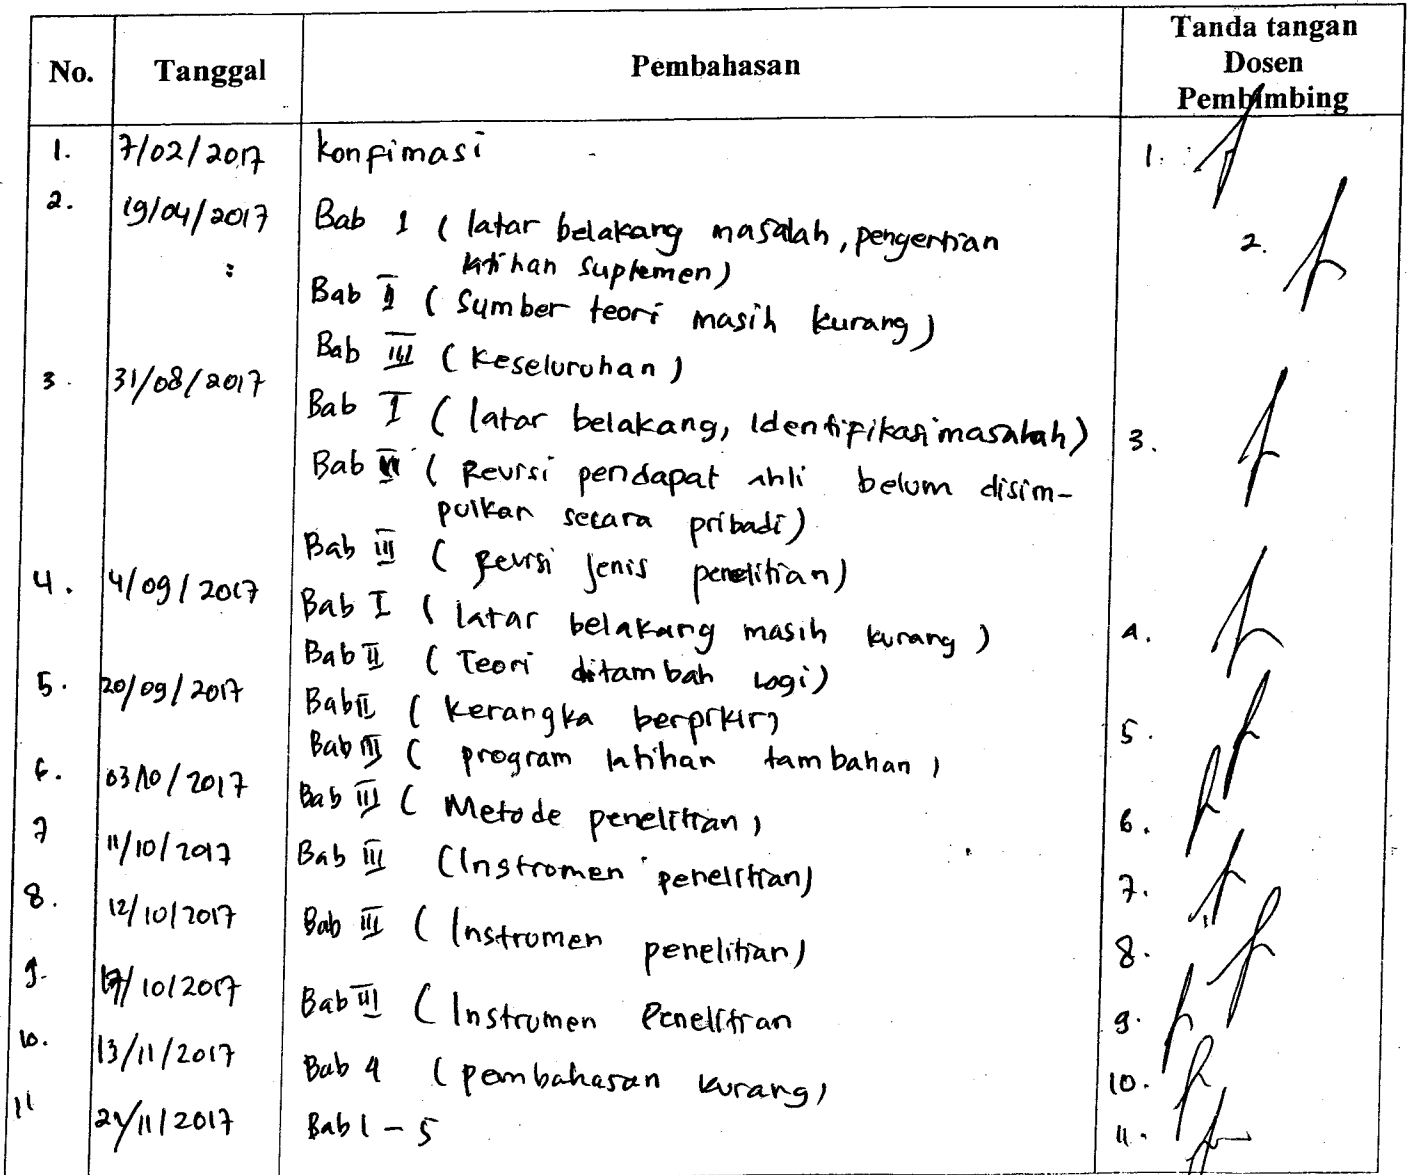 No. Tanggal Pembahasan Tanda tangan
Dosen
Pembimbing
1. 7/02/2017 konfimasi 1.
2. 19/04/2017 Bab I ( latar belakang masalah, pengertian 2.
latihan suplemen)
Bab II ( Sumber teori masih kurang)
Bab III ( keseluruhan )
3. 31/08/2017
Bab I ( latar belakang, Identifikasi masalah) 3.
Bab II ( Revisi pendapat ahli belum disim-
pulkan secara pribadi)
Bab III ( Revisi jenis penelitian)
4. 4/09/2017 Bab I ( latar belakang masih kurang ) 4.
Bab II ( Teori ditambah lagi)
5. 20/09/2017 Bab II ( kerangka berpikir) 5.
Bab III ( program latihan tambahan )
6. 03/10/2017 Bab III ( Metode penelitian ) 6.
7 11/10/2017 Bab III (Instrumen penelitian) 7.
8. 12/10/2017 Bab III ( Instrumen penelitian) 8.
9. /10/2017 Bab III ( Instrumen Penelitian 9.
10. 13/11/2017 Bab 4 ( pembahasan kurang) 10.
11 /11/2017 Bab 1 - 5 11.